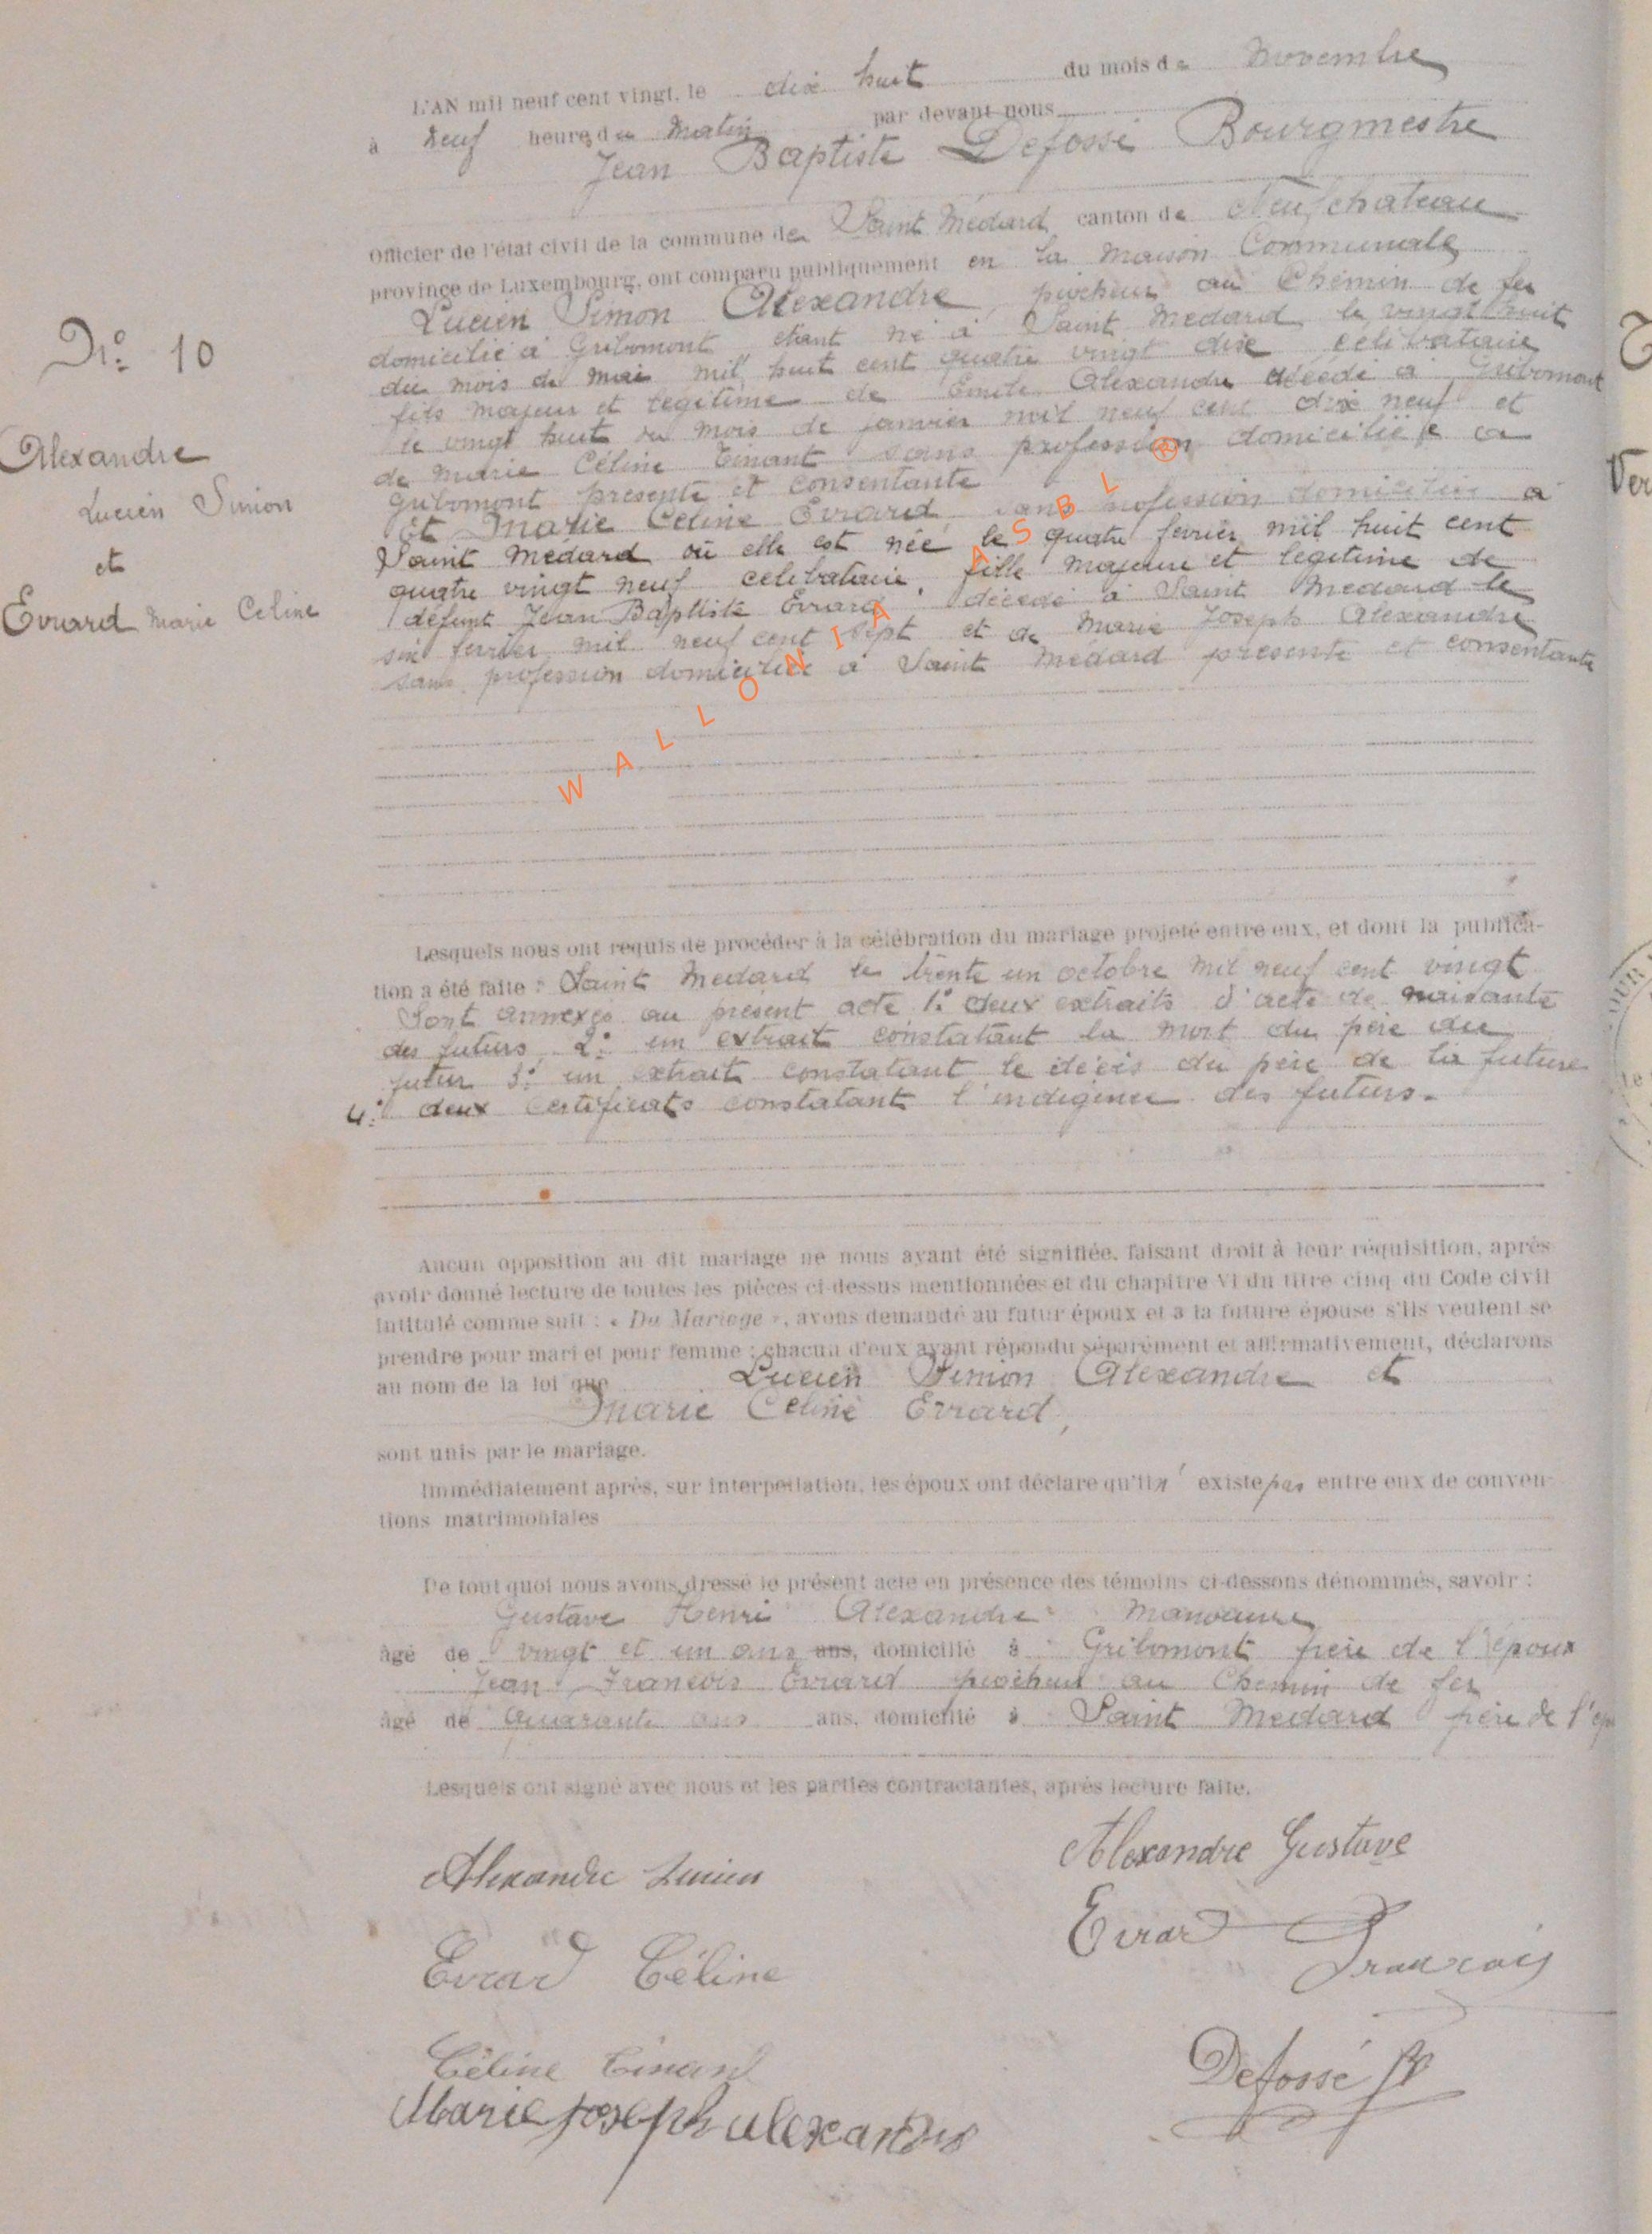 L'AN mil neuf cent vingt, le dix huit du mois de Novembre
à neuf heures du Matin par devant nous
Jean Baptiste Defossé Bourgmestre
Officier de l'état civil de la commune de Saint Médard canton de Neufchateau
province de Luxembourg, ont comparu publiquement en la maison Communale
Lucien Simon Alexandre piocheur au Chemin de fer
domicilié à Gribomont étant né à Saint Medard le vingt huit
du mois de mai mil huit cent quatre vingt dix célibataire
fils majeur et legitime de Emile Alexandre décédé à Gribomont
le vingt huit du mois de janvier mil neuf cent dix neuf et
de Marie Céline Tinant sans profession domiciliée à
Gribomont présente et consentante
Et Marie Celine Evrard, sans profession domiciliée à
Saint Medard où elle est née le quatre fevrier mil huit cent
quatre vingt neuf célibataire, fille majeure et legitime de
défunt Jean Baptiste Evrard décédé à Saint Medard le
six ferrier mil neuf cent sept et de Marie Joseph Alexandre
sans profession domiciliée à Saint Medard présente et consentante
N° 10
Alexandre
Lucien Simon
et
Evrard Marie Celine
WALLONIA ASBL ®
Lesquels nous ont requis de procéder à la célébration du mariage projeté entre eux, et dont la publica-
tion a été faite : Saint Medard le trente un octobre mil neuf cent vingt
Sont annexés au présent acte 1° deux extraits d'acte de naissante
des futurs 2° un extrait constatant la mort du père du
futur 3° un extrait constatant le décès du père de la future
4° deux certificats constatant l'indigence des futurs.
Aucun opposition au dit mariage ne nous ayant été signifiée, faisant droit à leur réquisition, après
avoir donné lecture de toutes les pièces ci-dessus mentionnées et du chapitre VI du titre cinq du Code civil
intitulé comme suit : « Du Mariage », avons demandé au futur époux et à la future épouse s'ils veulent se
prendre pour mari et pour femme ; chacun d'eux ayant répondu séparément et affirmativement, déclarons
au nom de la loi que Lucien Simon Alexandre et
Marie Celine Evrard,
sont unis par le mariage.
Immédiatement après, sur interpellation, les époux ont déclaré qu'il n'existe pas entre eux de conven-
tions matrimoniales
De tout quoi nous avons dressé le présent acte en présence des témoins ci-dessous dénommés, savoir :
Gustave Henri Alexandre manœuvre
âgé de vingt et un ans ans, domicilié à Gribomont frère de l'époux
Jean Francois Evrard piocheur au Chemin de fer
âgé de quarante ans ans, domicilié à Saint Medard frère de
Lesquels ont signé avec nous et les parties contractantes, après lecture faite.
Alexandre Lucien
Alexandre Gustave
Evrard Céline
Evrard François
Céline Tinant
Marie Joseph Alexandre
Defossé JB